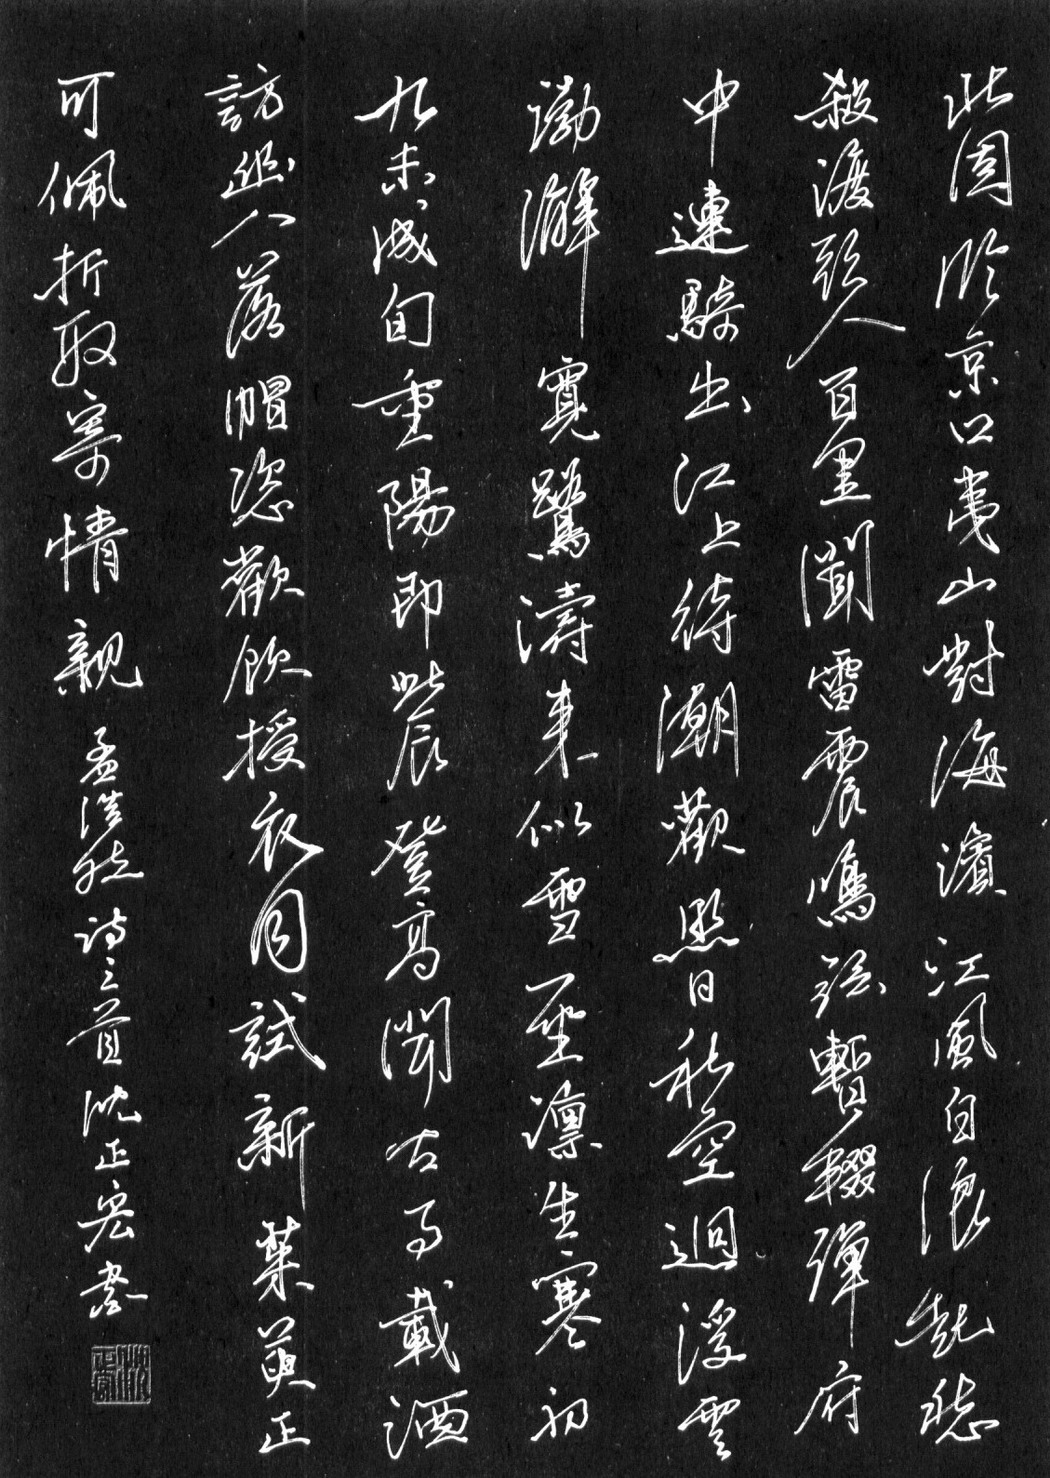 北固临京口夷山對海濱江風白浪起愁
殺渡頭人百里聞雷震鳴弦暫輟彈府
中連騎出江上待潮觀照日秋空迥浮雲
渤澥寬驚濤來似雪一坐凛生寒初
九未成旬重陽即此辰登高聞古事載酒
訪幽人落帽恣歡飲授衣同試新茱萸正
可佩折取寄情親孟浩然詩三首沈正宏書